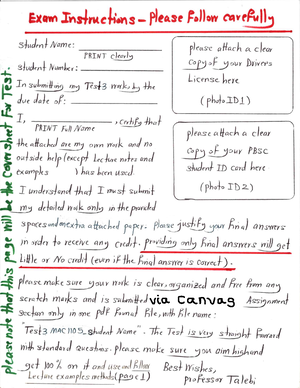 Exam Instructions - Please Follow carefully
Student Name:
PRINT clearly
Student Number:
In submitting my Test3 work, by the
due date of:
I, , certify that
PRINT Full Name
the attached are my own work and no
outside help (except Lecture notes and
examples ) has been used.
I understand that I must submit
my detailed work only in the provided
spaces and extra attached paper. Please justify your Final answers
in order to receive any credit. providing only Final answers will get
Little or No credit (even if the Final answer is correct).
please attach a clear
copy of your Drivers
License here
(photo ID1)
please attach a clear
copy of your PBSC
student ID card here
(photo ID2)
please make sure your work is clear, organized and free from any
scratch marks and is submitted via Canvas Assignment
Section only in one pdf Format File, with file name:
"Test3 mac1105 student Name". The Test is very straight forward
with standard questions. please make sure you aim high and
get 100% on it and use and follow
Lecture examples methods (page 1)
Best Wishes,
professor Talebi
please note that this page will be the cover sheet For Test.